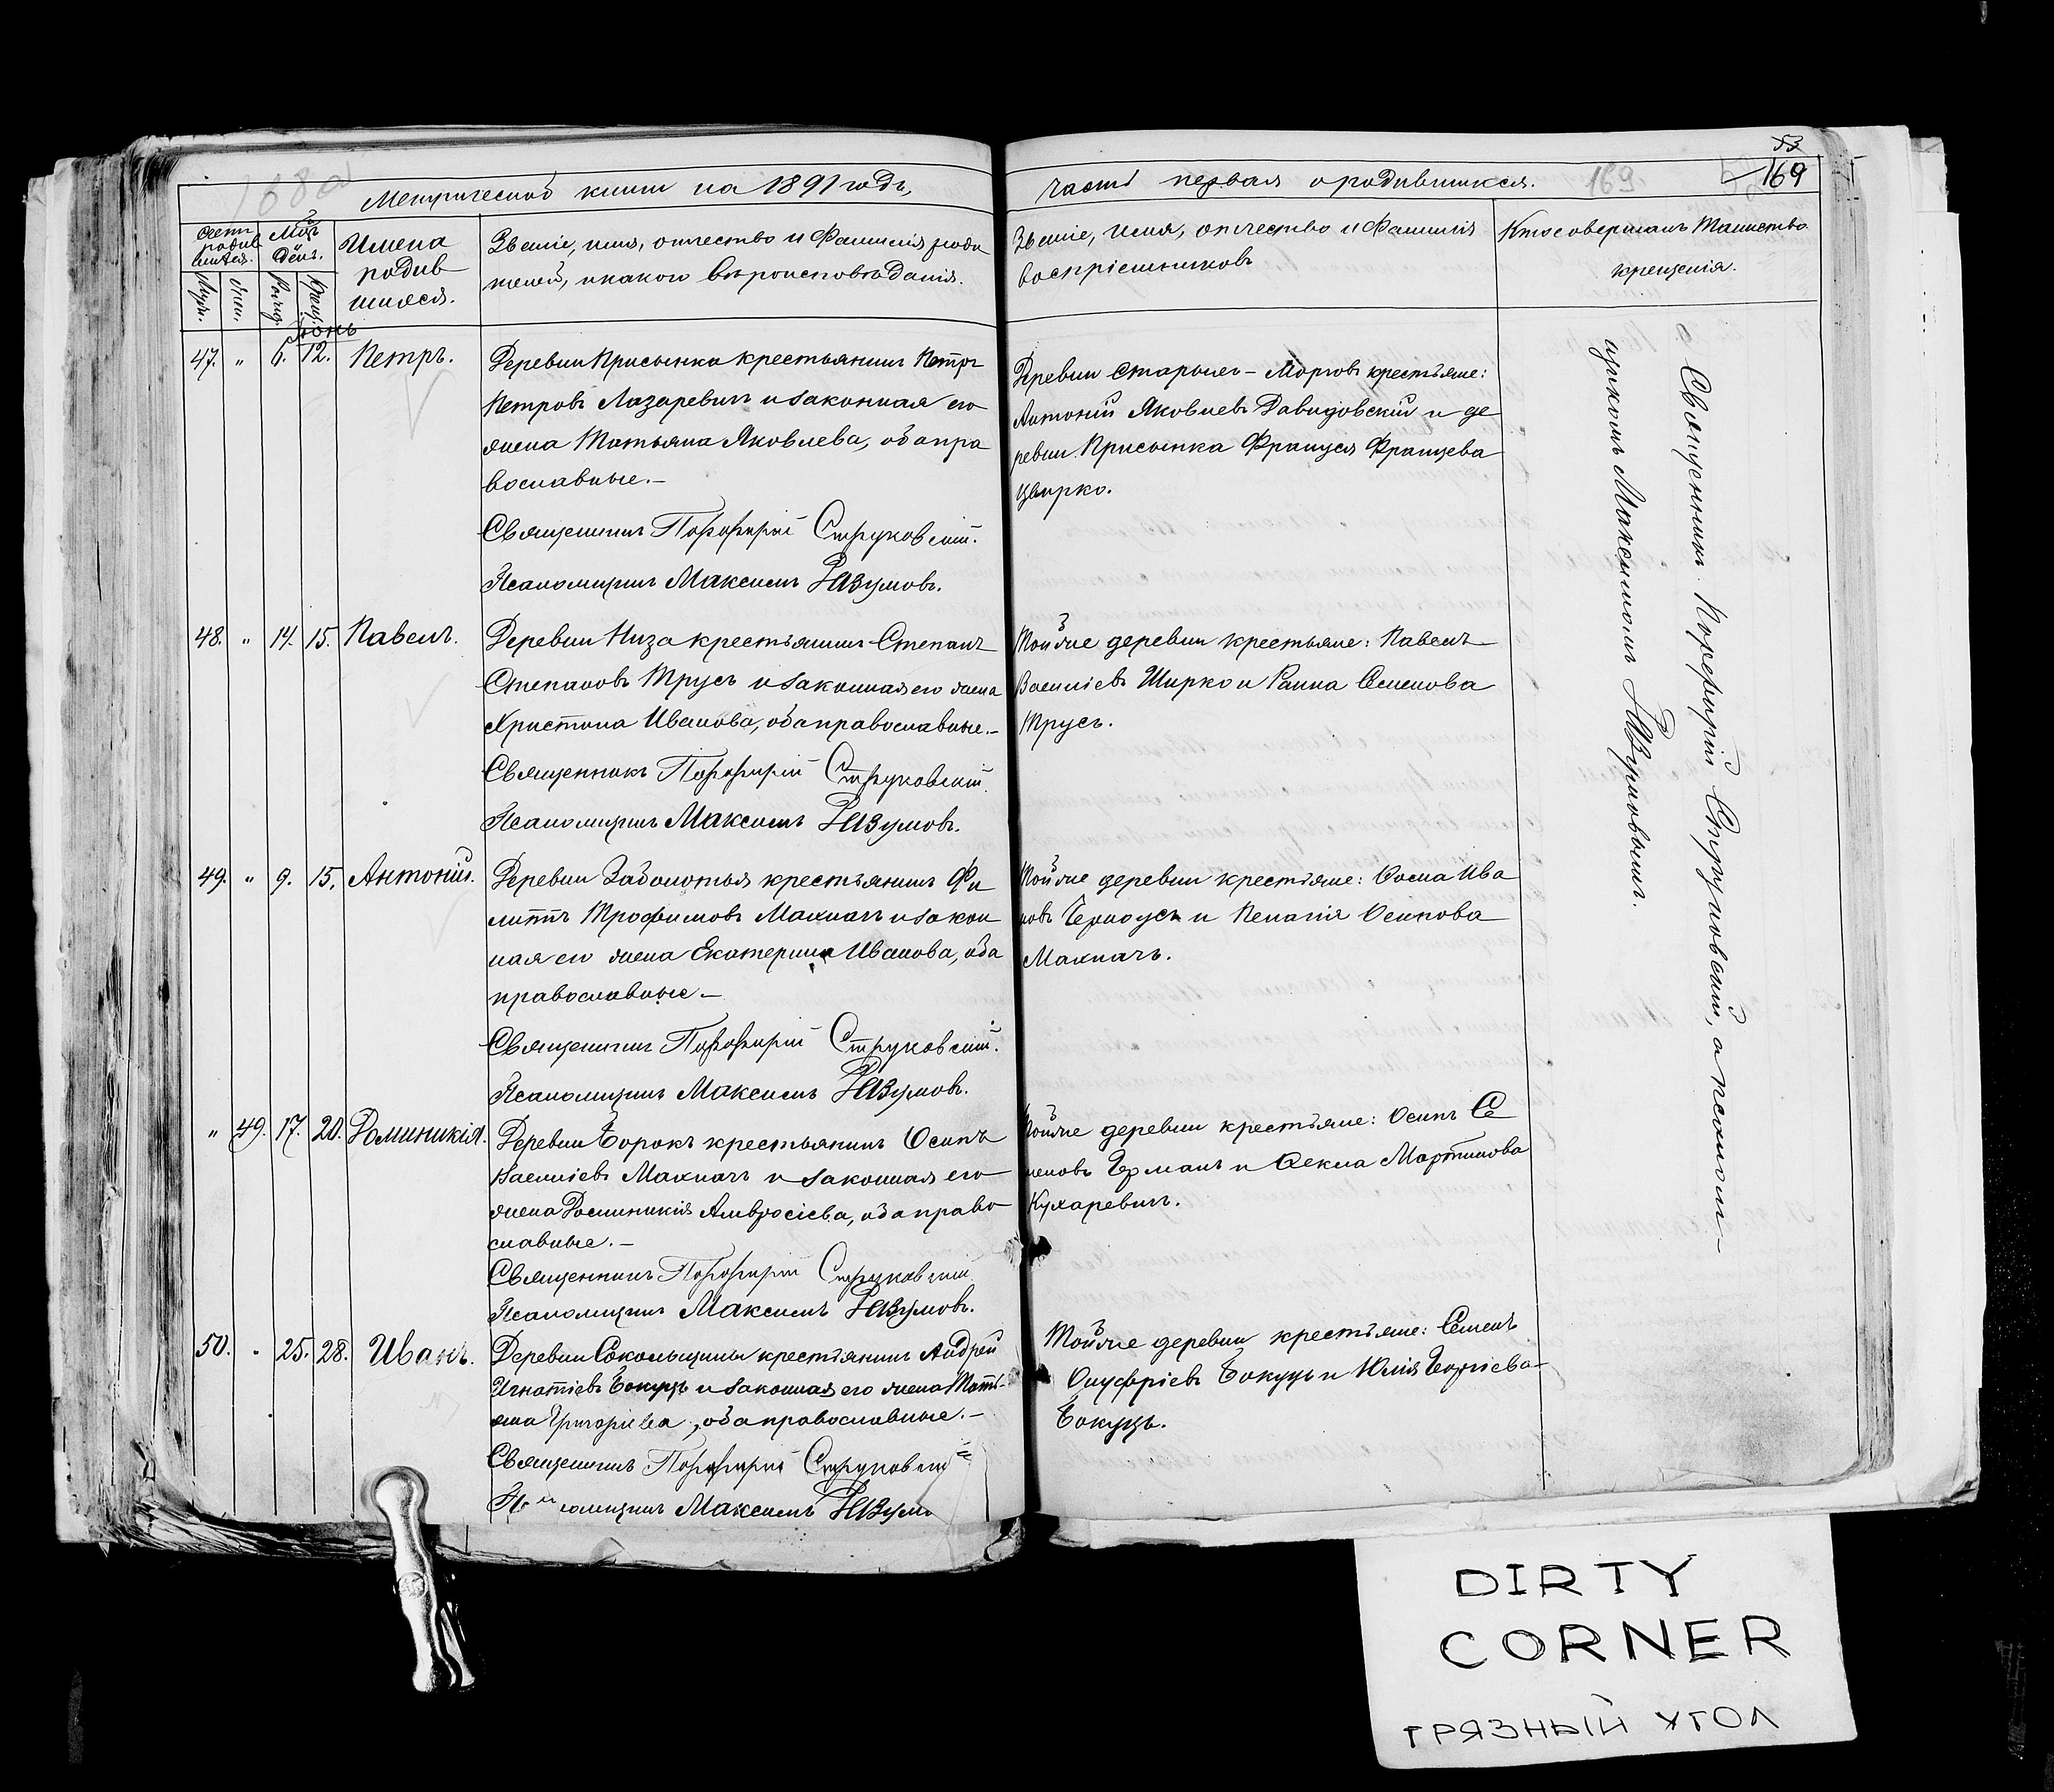 53
169
169
168об
Метрической книги на 1891 годъ,
часть первая о родившихся.
Счетъ родив шихся.
Мцъ и День.
Имена родив шихся.
Званіе, имя, отчество и Фамилія роди
телей, и какого вѣроисповѣданія.
Званіе, имя, отчество и Фамилія
воспріемниковъ
Кто совершалъ Таинство
крещенія.
Муж.
Жен.
Рожд.
Крещ.
Іюнь
47. " 6. 12. Петръ.
Деревни Присынка крестьянинъ Петръ
Петровъ Лазаревичъ и законная его
жена Татьяна Яковлева, оба пра
вославные.–
Священникъ Порфирій Струковскій.
Псаломщикъ Максимъ Разумовъ.
Деревни Старыхъ–Морговъ крестьяне:
Антоній Яковлевъ Давидовскій и де
ревни Присынка Француся Францева
Цвирко.
48. " 14. 15. Павелъ.
Деревни Низа крестьянинъ Степанъ
Степановъ Трусъ и законная его жена
Христина Иванова, оба православные.–
Священникъ Порфирій Струковскій.
Псаломщикъ Максимъ Разумовъ.
Той же деревни крестьяне: Павелъ
Василіевъ Ширко и Ганна Семенова
Трусъ.
49. " 9. 15. Антоній.
Деревни Заболотья крестьянинъ Фи
липпъ Трофимовъ Махначъ и закон
ная его жена Екатерина Иванова, оба
православные–
Священникъ Порфирій Струковскій.
Псаломщикъ Максимъ Разумовъ.
Той же деревни крестьяне: Ѳома Ива
новъ Черноусъ и Пелагія Осипова
Махначъ.
" 49. 17. 20. Доминикія.
Деревни Борокъ крестьянинъ Осипъ
Василіевъ Махначъ и законная его
жена Доминикія Амвросіева, оба право
славные.–
Священникъ Порфирій Струковскій
Псаломщикъ Максимъ Разумовъ.
Той же деревни крестьяне: Осипъ Се
меновъ Германъ и Ѳекла Мартинова
Кухаревичъ.
50. " 25. 28. Иванъ.
Деревни Сокольщины крестьянинъ Андрей
Игнатіевъ Бокуць и законная его жена Тать-
яна Григоріева, оба православные.–
Священникъ Порфирій Струковскій
Псаломщикъ Максимъ Разумо
Той же деревни крестьяне: Семенъ
Онуфріевъ Бокуць и Юлія
Бокуць.
Священникъ Порфирій Струковскій, а псалом–
щикомъ Максимомъ Разумовымъ.
DIRTY
CORNER
ГРЯЗНЫЙ УГОЛ